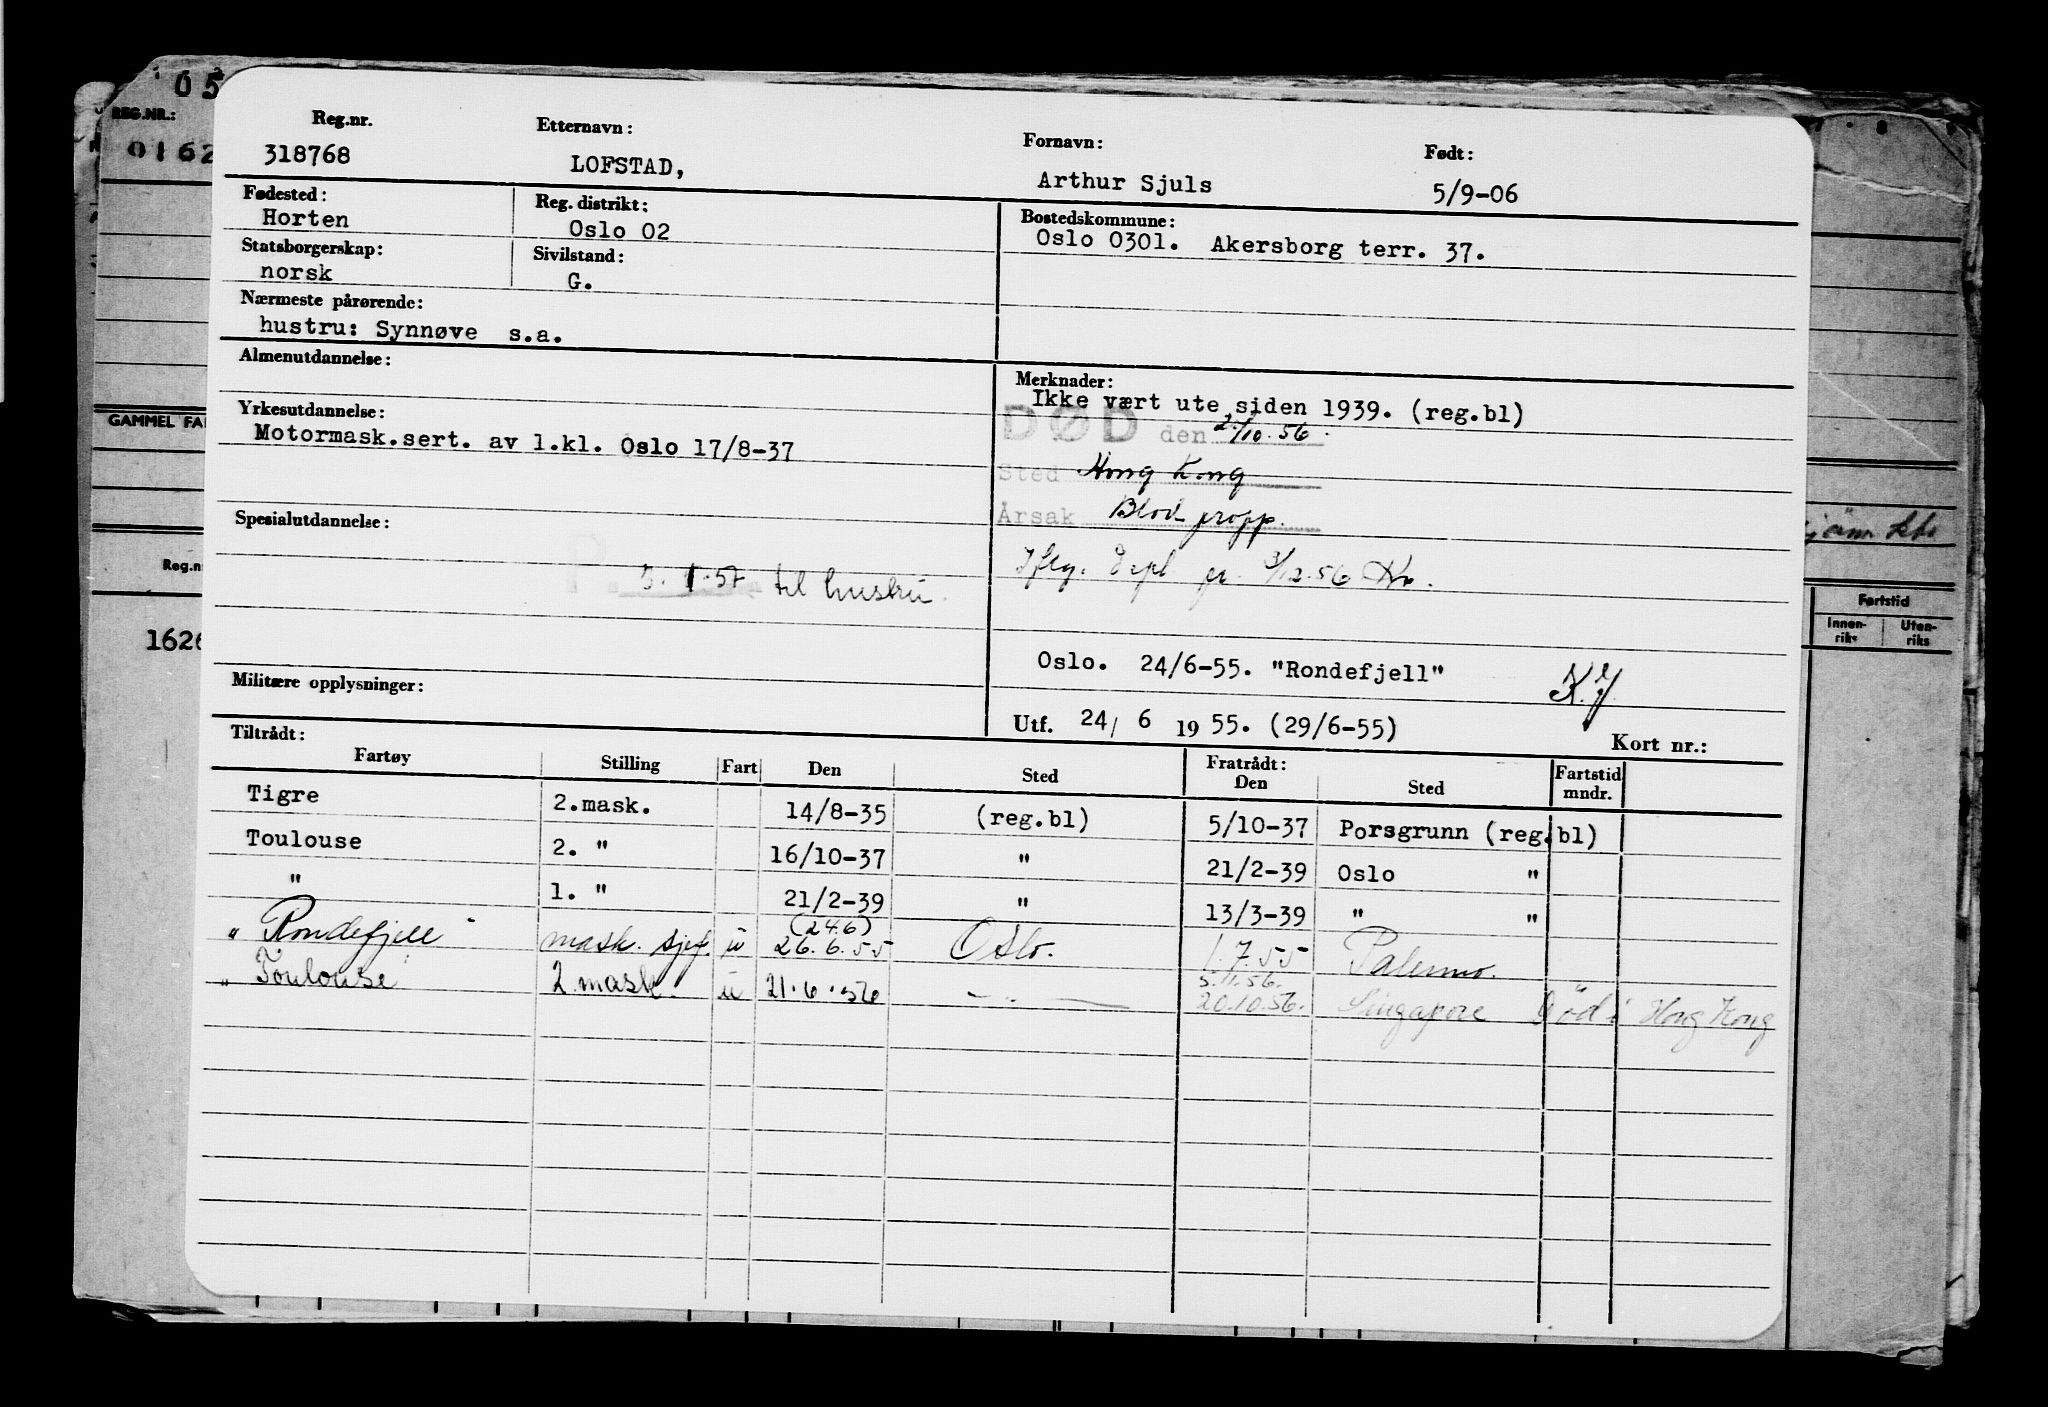 05
REG.NR.:
0162
GAMMEL FA
Reg.n
1626
Fartstid
Innen-riks Uten-riks
Reg.nr. Etternavn: Fornavn: Født:
318768 LOFSTAD, Arthur Sjuls 5/9-06
Fødested: Reg. distrikt: Bostedskommune:
Horten Oslo 02 Oslo 0301. Akersborg terr. 37.
Statsborgerskap: Sivilstand:
norsk G.
Nærmeste pårørende:
hustru: Synnøve s.a.
Almenutdannelse:
Merknader:
Ikke vært ute siden 1939. (reg.bl)
Yrkesutdannelse:
Motormask.sert. av 1.kl. Oslo 17/8-37
DØD den /10.56.
Sted Hong Kong
Årsak Blod propp.
Spesialutdannelse:
P. 5.1.57 til hustru.
Iflg. 3/12.56
Oslo. 24/6-55. "Rondefjell"
Militære opplysninger:
Utf. 24/ 6 1955. (29/6-55)
Kort nr.:
Tiltrådt: Fratrådt:
Fartøy Stilling Fart Den Sted Den Sted Fartstid mndr.
Tigre 2.mask. 14/8-35 (reg.bl) 5/10-37 Porsgrunn (reg.bl)
Toulouse 2. " 16/10-37 " 21/2-39 Oslo "
" 1. " 21/2-39 " 13/3-39 " "
" Rondefjell " mask. sjef. u (24.6) 26.6.55 Oslo. 1.7.55 Palermo.
" Toulouse " 2 mask. u 21.6.56 - " - 5.11.56. 20.10.56. Singapore Død i Hong Kong